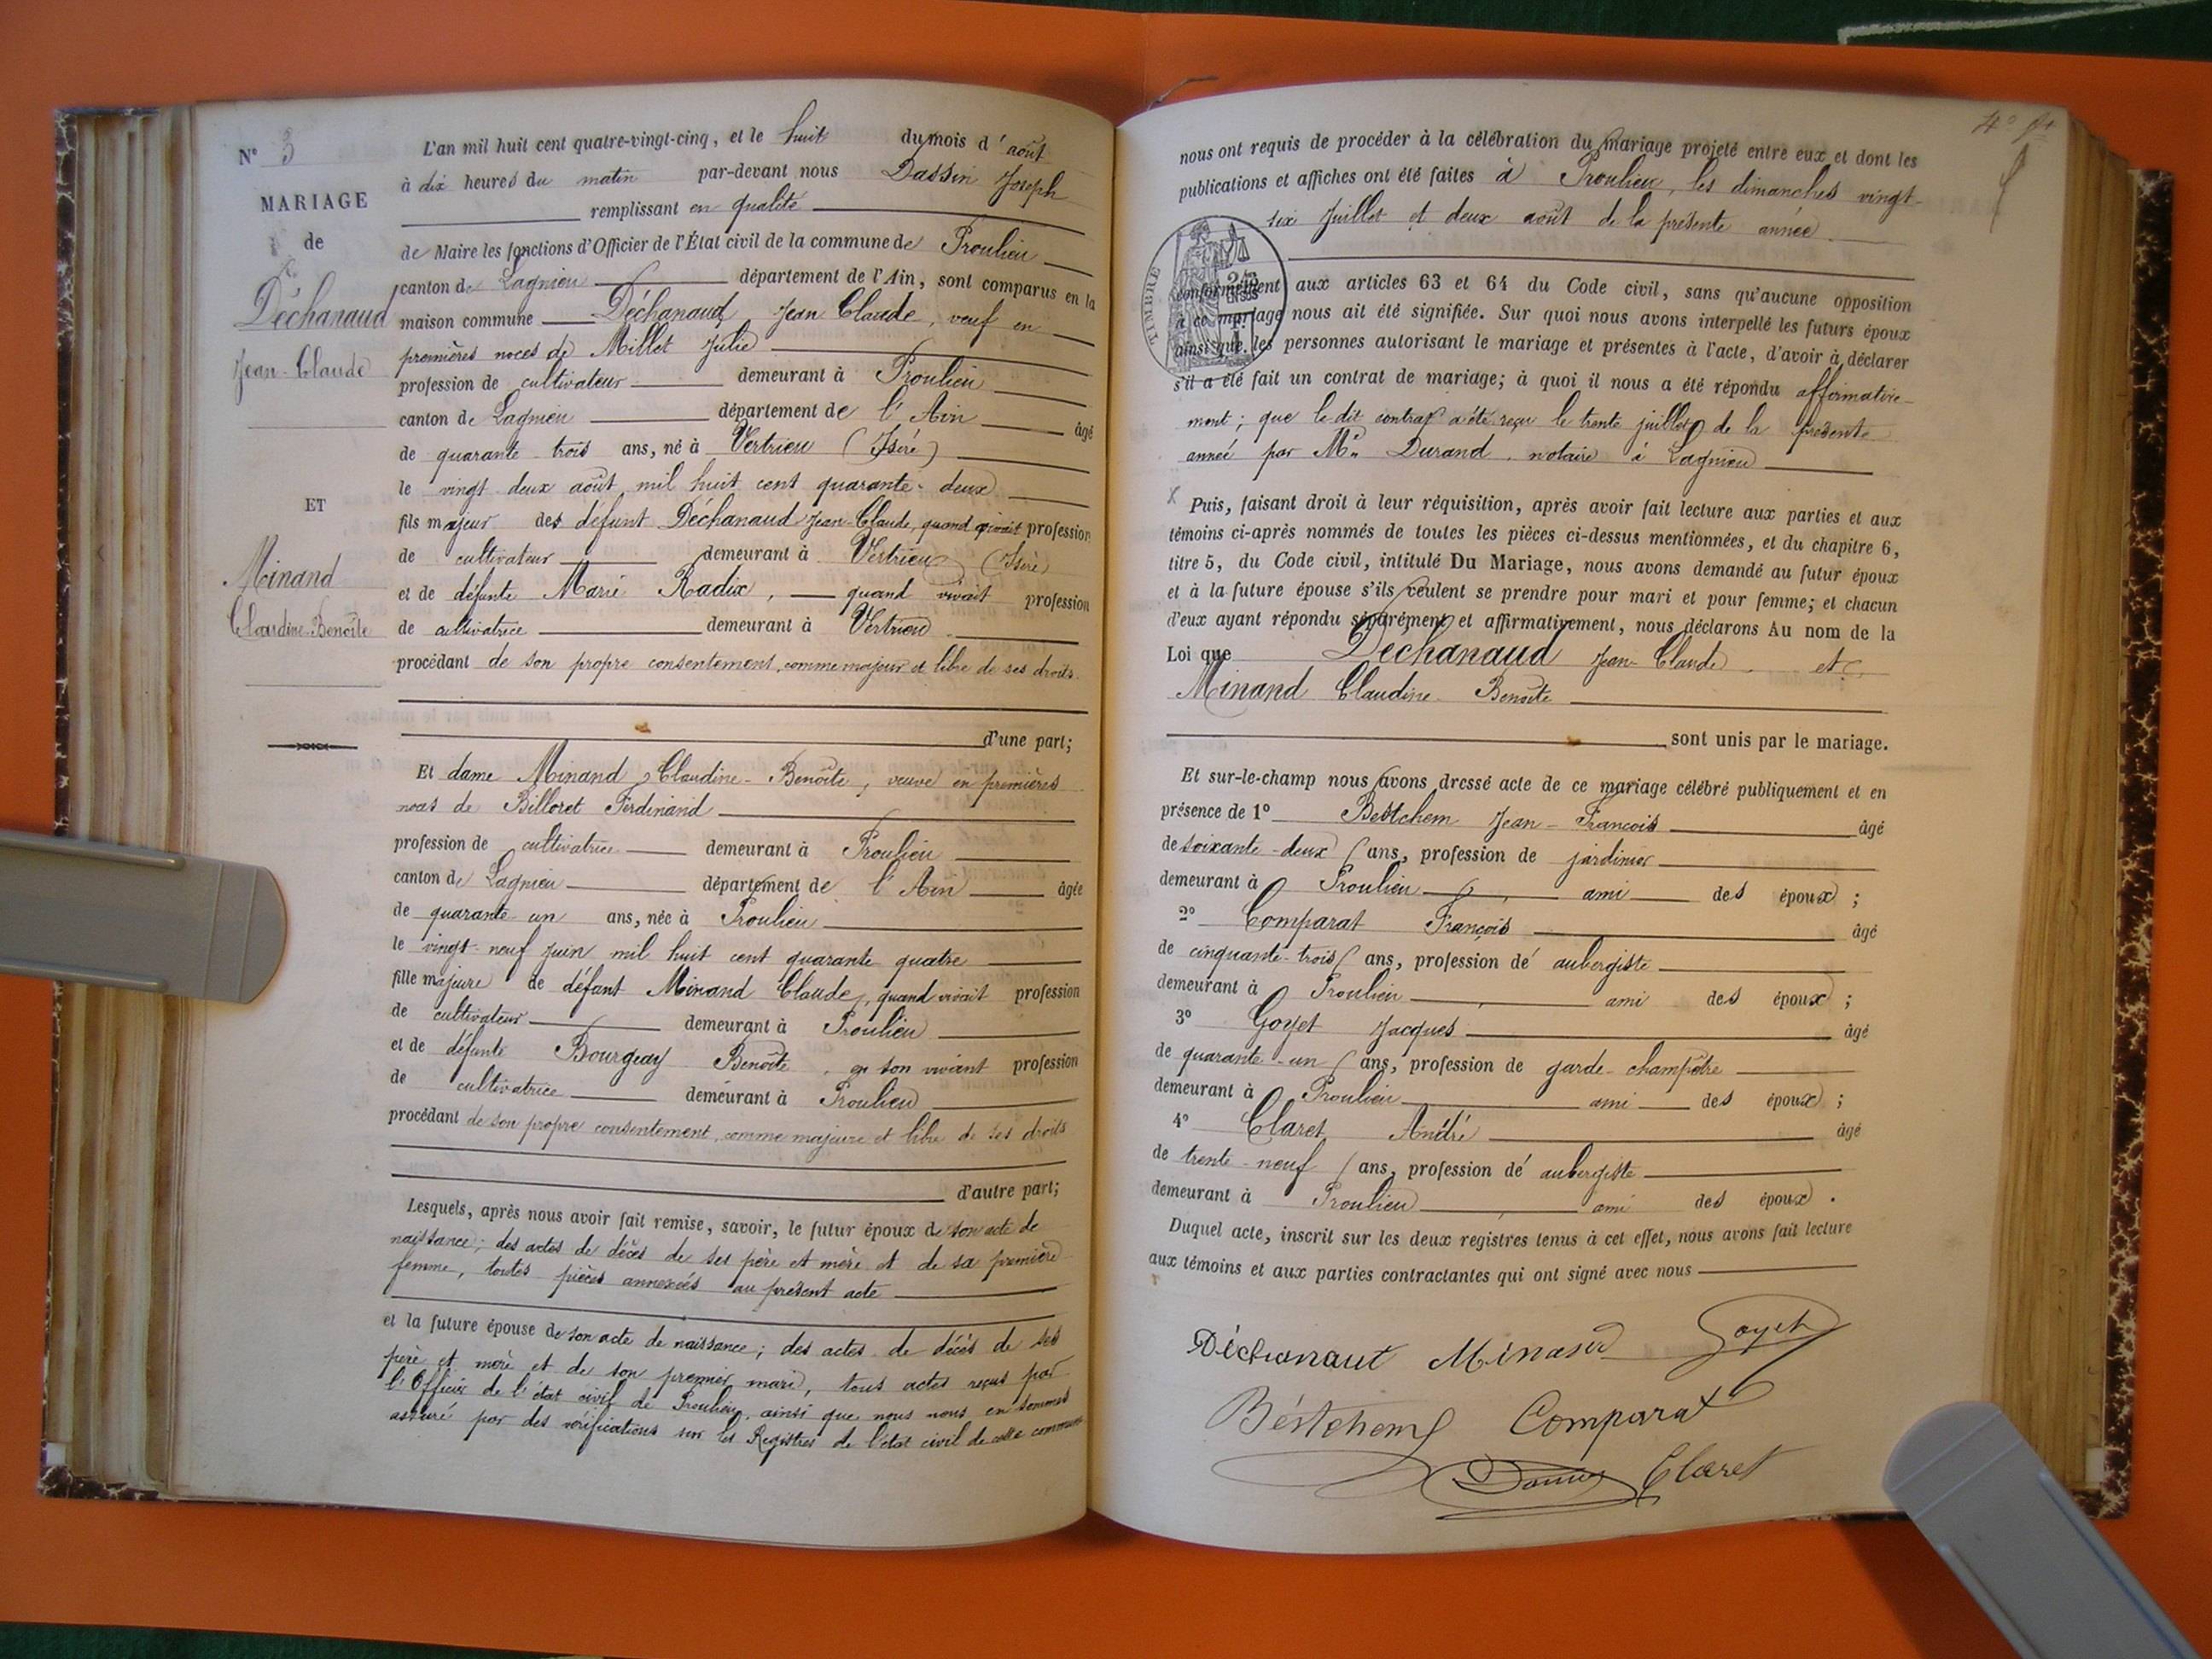 N° 3
MARIAGE
de
Déchanaud
Jean-Claude
ET
Minand
Claudine-Benoîte
L'an mil huit cent quatre-vingt-cinq, et le huit du mois d'août
à dix heures du matin par-devant nous Dassin Joseph
remplissant en qualité
de Maire les fonctions d'Officier de l'État civil de la commune de Proulieu
canton de Lagnieu département de l'Ain, sont comparus en la
maison commune Déchanaud Jean Claude, veuf en
premières noces de Millet Julie
profession de cultivateur demeurant à Proulieu
canton de Lagnieu département de l'Ain âgé
de quarante trois ans, né à Vertrieu (Isère)
le vingt deux août mil huit cent quarante-deux
fils majeur des défunt Déchanaud Jean-Claude, quand vivait profession
de cultivateur demeurant à Vertrieu (Isère)
et de défunte Marie Radix, quand vivait profession
de cultivatrice demeurant à Vertrieu
procédant de son propre consentement, comme majeur et libre de ses droits.
d'une part;
Et dame Minand Claudine-Benoîte, veuve en premières
noces de Billoret Ferdinand
profession de cultivatrice demeurant à Proulieu
canton de Lagnieu département de l'Ain âgée
de quarante un ans, née à Proulieu
le vingt-neuf juin mil huit cent quarante quatre
fille majeure de défunt Minand Claude, quand vivait profession
de cultivateur demeurant à Proulieu
et de défunte Bourgeay Benoîte, en son vivant profession
de cultivatrice demeurant à Proulieu
procédant de son propre consentement, comme majeure et libre de ses droits
d'autre part;
Lesquels, après nous avoir fait remise, savoir, le futur époux de son acte de
naissance; des actes de décès de ses père et mère et de sa première
femme, toutes pièces annexées au présent acte
et la future épouse de son acte de naissance; des actes de décès de ses
père et mère et de son premier mari, tous actes reçus par
l'Officier de l'état civil de Proulieu, ainsi que nous nous en sommes
assuré par des vérifications sur les Registres de l'état civil de cette commune
nous ont requis de procéder à la célébration du mariage projeté entre eux et dont les
publications et affiches ont été faites à Proulieu, les dimanches vingt-
six juillet et deux août de la présente année
TIMBRE
conformément aux articles 63 et 64 du Code civil, sans qu'aucune opposition
à ce mariage nous ait été signifiée. Sur quoi nous avons interpellé les futurs époux
ainsi que les personnes autorisant le mariage et présentes à l'acte, d'avoir à déclarer
s'il a été fait un contrat de mariage; à quoi il nous a été répondu affirmative-
ment; que le dit contrat a été reçu le trente juillet de la présente
année par Me Durand, notaire à Lagnieu
Puis, faisant droit à leur réquisition, après avoir fait lecture aux parties et aux
témoins ci-après nommés de toutes les pièces ci-dessus mentionnées, et du chapitre 6,
titre 5, du Code civil, intitulé Du Mariage, nous avons demandé au futur époux
et à la future épouse s'ils veulent se prendre pour mari et pour femme; et chacun
d'eux ayant répondu séparément et affirmativement, nous déclarons Au nom de la
Loi que Déchanaud Jean-Claude et
Minand Claudine-Benoîte
sont unis par le mariage.
Et sur-le-champ nous avons dressé acte de ce mariage célébré publiquement et en
présence de 1° Bestchem Jean-François âgé
de soixante-deux ans, profession de jardinier
demeurant à Proulieu ami des époux;
2° Comparat François âgé
de cinquante-trois ans, profession d'aubergiste
demeurant à Proulieu ami des époux;
3° Goyet Jacques âgé
de quarante-un ans, profession de garde-champêtre
demeurant à Proulieu ami des époux;
4° Claret André âgé
de trente-neuf ans, profession d'aubergiste
demeurant à Proulieu ami des époux.
Duquel acte, inscrit sur les deux registres tenus à cet effet, nous avons fait lecture
aux témoins et aux parties contractantes qui ont signé avec nous
Déchanaut Minand Goyet
Béstchem Comparat
Claret